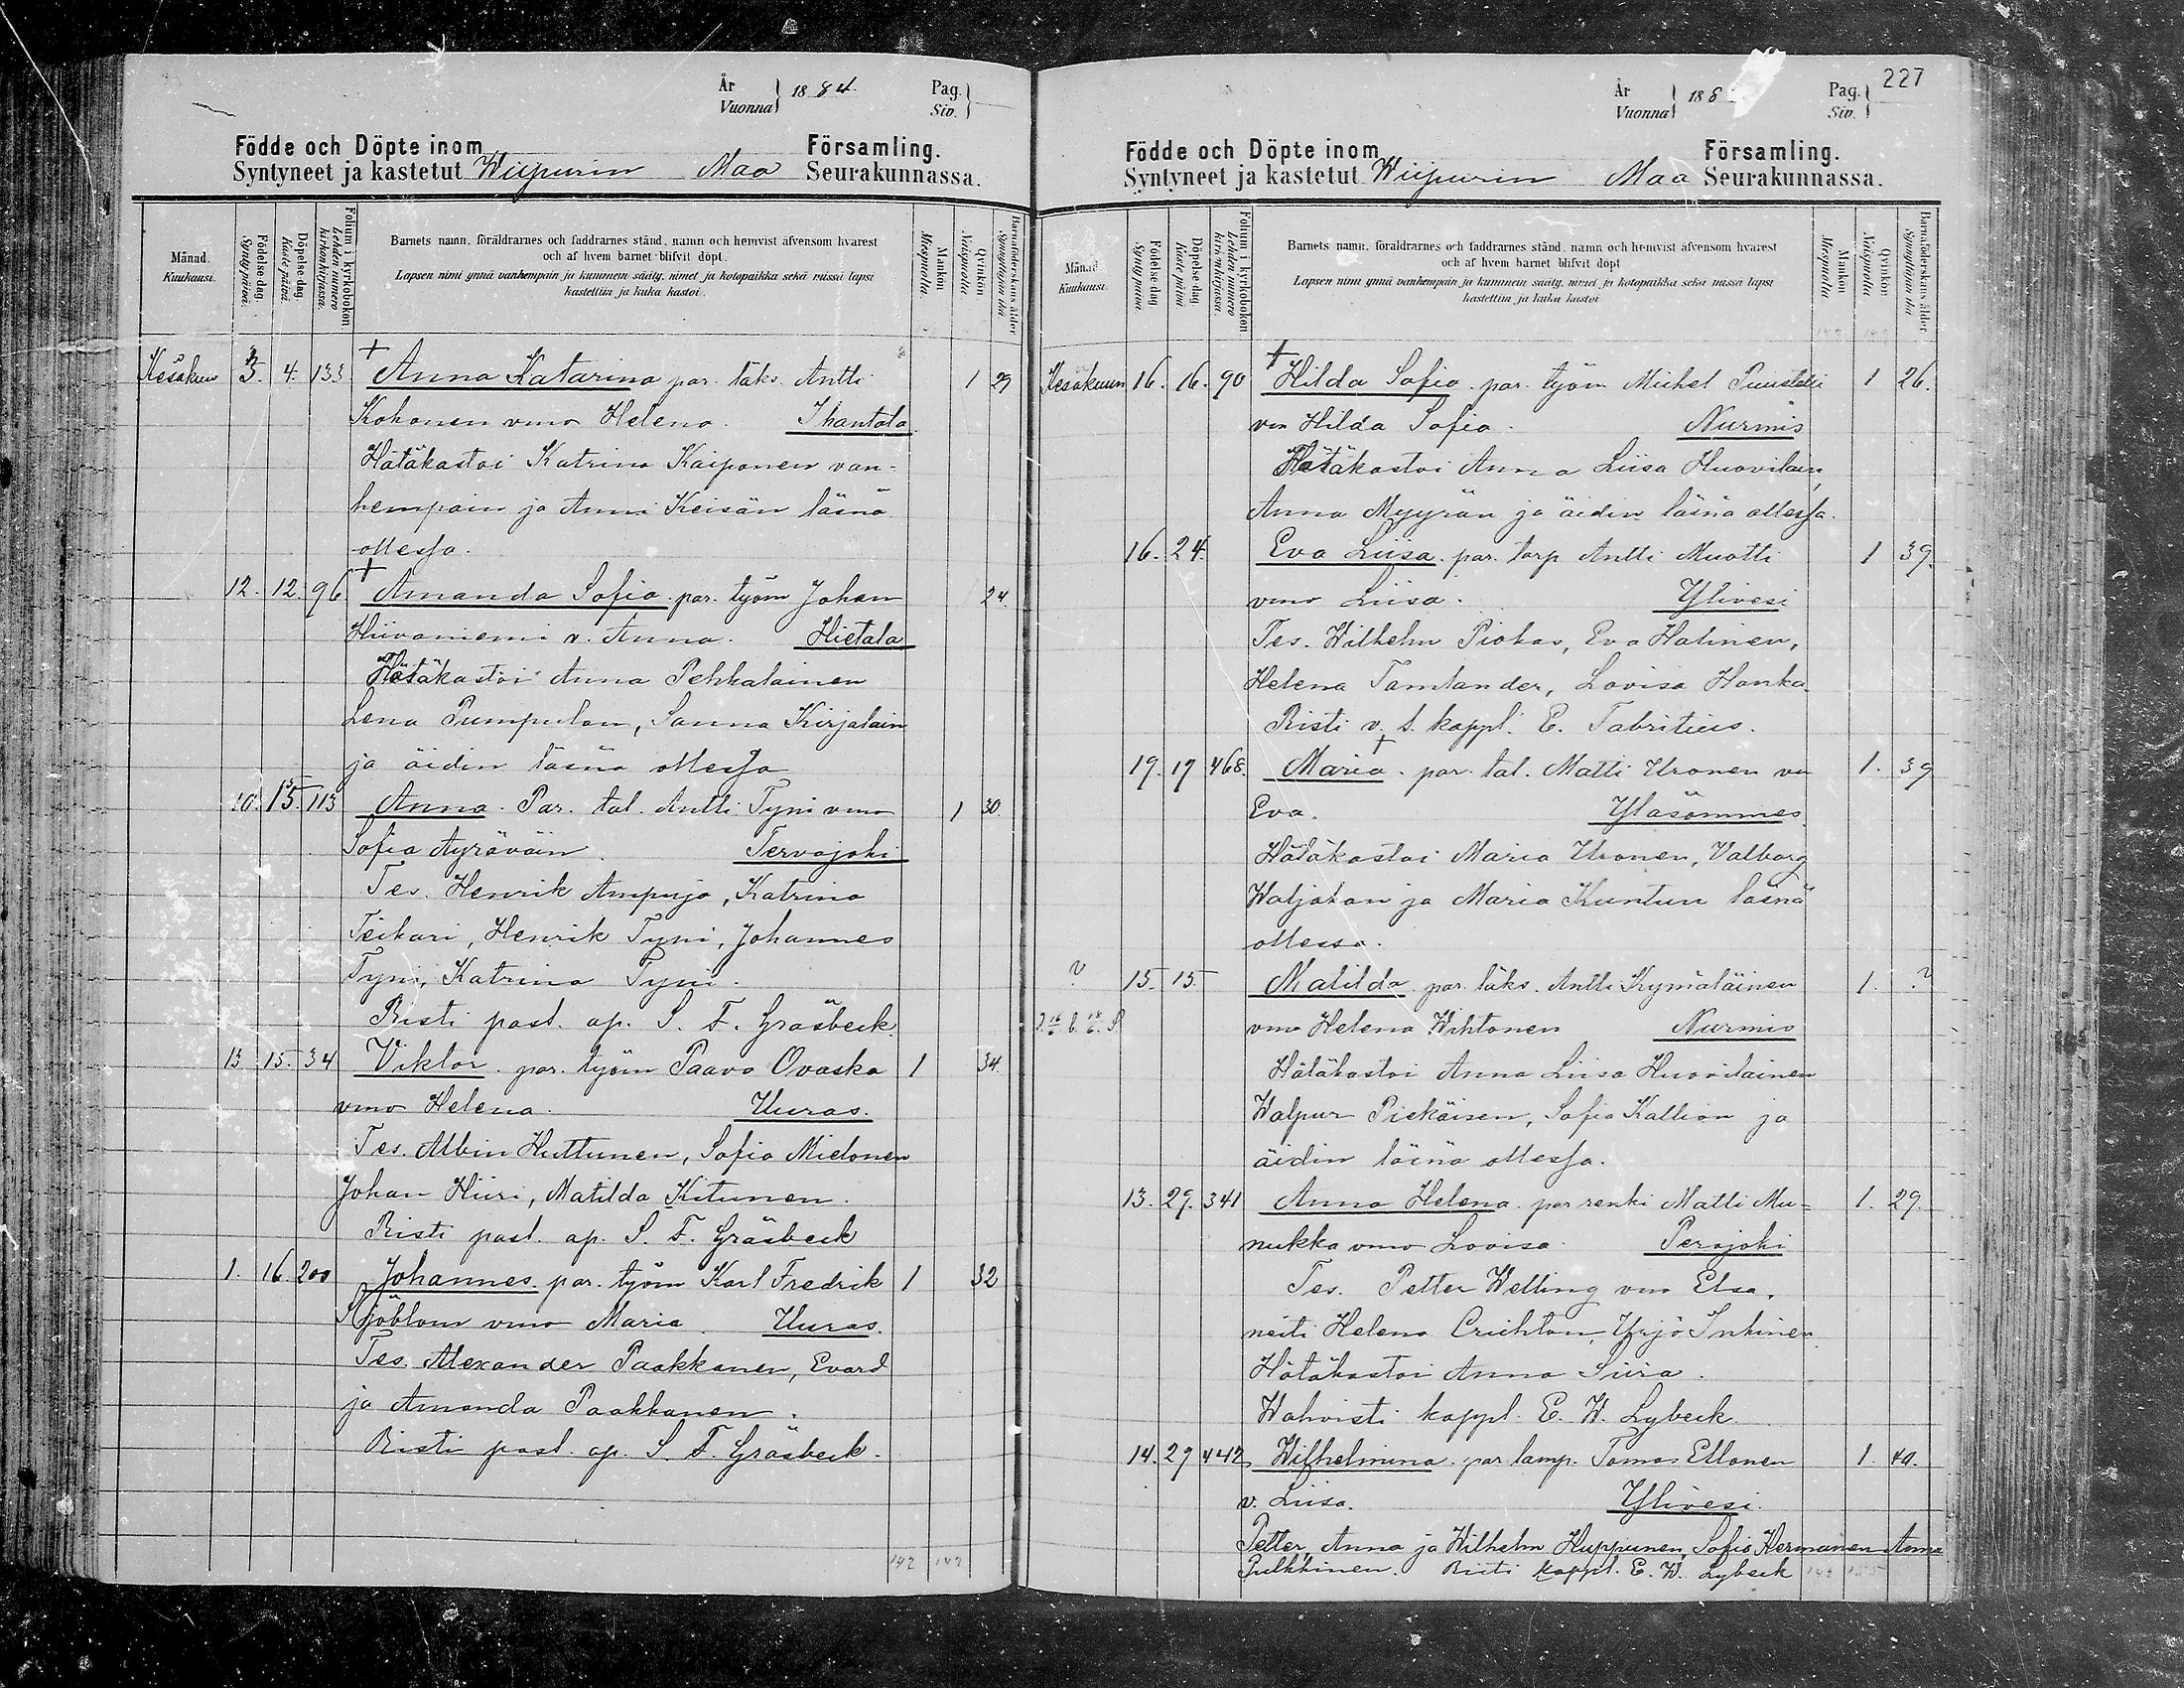 År
Vuonna } 1884.
Pag.
Siv. }
Födde och Döpte inom Församling.
Syntyneet ja kastetut Wiipurin Maa Seurakunnassa.
Månad.
Kuukausi.
Födelse dag.
Synty päivä.
Döpelse dag.
Kaste päivä.
Folium i kyrkoboken
Lehden numero kirkonkirjassa.
Barnets namn, föräldrarnes och faddrarnes stånd, namn och hemvist äfvensom hvarest
och af hvem barnet blifvit döpt.
Lapsen nimi ynnä vanhempain ja kummein sääty, nimet ja kotopaikka sekä missä lapsi
kastettiin ja kuka kastoi.
Mankön
Miespuolia
Qvinkön
Naispuolia
Barnaföderskans ålder
Synyttäjän ikä
Kesäkuu 3. 4. 133 + Anna Katarina par. läks. Antti 1 29
Kohonen vmo Helena. Ihantala
Hätäkastoi Katrina Kaiponen van-
hempain ja Anni Keisän läsnä
ollessa.
12. 12. 96 + Amanda Sofia par. työm Johan 24.
Hiivaniemi v. Anna. Hietala
Hätäkastoi Anna Pehkalainen
Lena Pumpulan, Sanna Kirjalain
ja äidin läsnä ollessa
10. 15. 113 Anna. Par. tal. Antti Tyni vmo 1 30.
Sofia Ayräväin. Tervajoki
Tes. Henrik Ampuja, Katrina
Teikari, Henrik Tyni, Johannes
Tyni, Katrina Tyni.
Risti past. ap. S. F. Gräsbeck.
13 15. 34 Viktor. par. työm Paavo Ovaska 1 34.
vmo Helena. Uuras.
Tes. Albin Huttunen, Sofia Mielonen
Johan Hiiri, Matilda Kitunen.
Risti past. ap. S. F. Gräsbeck
1. 16. 200 Johannes. par. työm Karl Fredrik 1 32
Sjöblom vmo Maria. Uuras.
Tes. Alexander Paakkanen, Evard
ja Amanda Paakkanen.
Risti past. ap. S. F. Gräsbeck.
142 147
227
År
Vuonna } 188
Pag.
Siv. }
Födde och Döpte inom Församling.
Syntyneet ja kastetut Wiipurin Maa Seurakunnassa.
Månad.
Kuukausi.
Födelse dag.
Synty päivä.
Döpelse dag.
Kaste päivä.
Folium i kyrkoboken
Lehden numero kirkonkirjassa.
Barnets namn, föräldrarnes och faddrarnes stånd, namn och hemvist äfvensom hvarest
och af hvem barnet blifvit döpt
Lapsen nimi ynnä vanhempain ja kummein sääty, nimet ja kotopaikka sekä missä lapsi
kastettiin ja kuka kastoi
Mankön
Miespuolia
Qvinkön
Naispuolia
Barnaföderskans ålder
Synyttäjän ikä
Kesäkuun 16. 16. 90 + Hilda Sofia. par. työm Michel Puustelli 1 26.
vm Hilda Sofia. Nurmis
Hätäkastoi Anna Liisa Huovilain,
Anna Myyrän ja äidin läsnä ollessa.
16. 24. Eva Liisa par. torp Antti Muotti 1 39.
vmo Liisa. Ylivesi
Tes. Wilhelm Piokas, Eva Halinen,
Helena Tamlander, Lovisa Hanka.
Risti v. t. kappl. E. Fabritius.
19. 19 468. Maria. + par. tal. Matti Uronen vm 1. 39
Eva. Yläsommes
Hätäkastoi Maria Uronen, Valborg
Waljakan ja Maria Kuntun läsnä
ollessa.
? 15. 15. Matilda. par. läks. Antti Kymäläinen 1. ?
vmo Helena Wihtonen Nurmis
Hätäkastoi Anna Liisa Huovilainen
Walpur Piekäisen, Sofia Kallion ja
äidin läsnä ollessa.
13. 29. 341 Anna Helena. par renki Matti Mu= 1. 29.
nukka vmo Lovisa. Perojoki
Tes. Petter Welling vmo Elsa,
neiti Helena Crichton, Yrjö Inkinen
Hätäkastoi Anna Siira.
Wahvisti kappl. E. W. Lybeck.
14. 29 442 Wilhelmina. par lamp. Tomas Ellonen 1. 40.
v. Liisa. Ylivesi.
Petter, Anna ja Wilhelm Huppunen, Sofia Hermunen Anna
Pulkkinen. Risti kappl. E. W. Lybeck 142 155